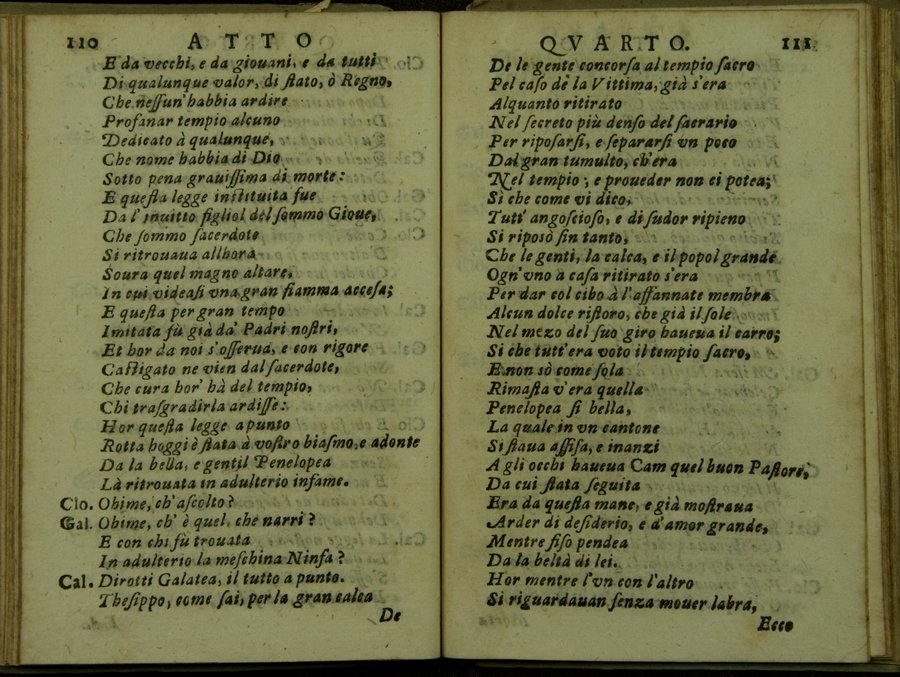 110 ATTO
E da vecchi, e da giouani, e da tutti
Di qualunque valor, di ſtato, ò Regno,
Che neſſun' habbia ardire
Profanar tempio alcuno
Dedicato à qualunque,
Che nome habbia di Dio
Sotto pena grauiſſima di morte:
E queſta legge inſtituita fue
Da l'inuitto figliol del ſommo Gioue,
Che ſommo ſacerdote
Si ritrouaua allhora
Soura quel magno altare,
In cui videaſi vna gran fiamma acceſa;
E queſta per gran tempo
Imitata fù già da' Padri noſtri,
Et hor da noi s'oſſerua, e con rigore
Caſtigato ne vien dal ſacerdote,
Che cura hor' hà del tempio,
Chi traſgradirla ardiſſe:
Hor queſta legge apunto
Rotta hoggi è ſtata à voſtro biaſmo, e adonte
Da la bella, e gentil Penelopea
Là ritrouata in adulterio infame.
Clo. Ohime, ch'aſcolto?
Gal. Ohime, ch' è quel, che narri?
E con chi fù trouata
In adulterio la meſchina Ninfa?
Cal. Dirotti Galatea, il tutto a punto.
Theſippo, come ſai, per la gran calca
De
QVARTO. 111
De le gente concorſa al tempio ſacro
Pel caſo dè la Vittima, già s'era
Alquanto ritirato
Nel ſecreto più denſo del ſacrario
Per ripoſarſi, e ſepararſi vn poco
Dal gran tumulto, ch'era
Nel tempio, e proueder non ci potea;
Sì che come vi dico,
Tutt' angoſcioſo, e di ſudor ripieno
Si ripoſò fin tanto,
Che le genti, la calca, e il popol grande
Ogn'vno a caſa ritirato s'era
Per dar col cibo à l'affannate membra
Alcun dolce riſtoro, che già il ſole
Nel mezo del ſuo giro haueua il carro;
Sì che tutt'era voto il tempio ſacro,
E non sò come ſola
Rimaſta v'era quella
Penelopea ſi bella,
La quale in vn cantone
Si ſtaua aſſiſa, e inanzi
A gli occhi haueua Cam quel buon Paſtore,
Da cui ſtata ſeguita
Era da queſta mane, e già moſtraua
Arder di deſiderio, e d'amor grande,
Mentre fiſo pendea
Da la beltà di lei.
Hor mentre l'vn con l'altro
Si riguardauan ſenza mouer labra,
Ecco